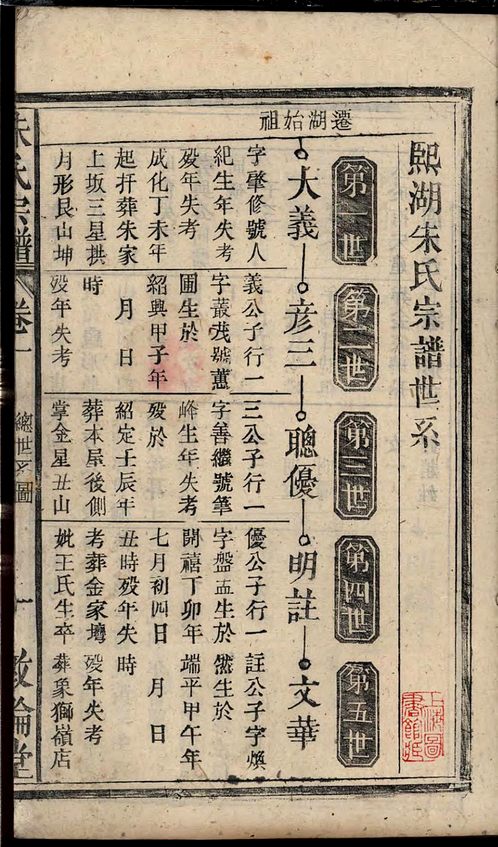 熙湖朱氏宗譜世系
第一世
第二世
第三世
第四世
第五世
遷湖始祖
大義
彦三
聰優
明註
文華
字肇修號人
紀生年失考
殁年失考
成化丁未年
起扦葬朱家
上坂三星拱
月形艮山坤
義公子行一
字叢茂號蕙
圃生於
紹興甲子年
月 日
時
殁年失考
三公子行一
字善繼號筆
峰生年失考
殁於
紹定壬辰年
葬本屋後側
掌金星丑山
優公子行一
字盤盂生於
開禧丁卯年
七月初四日
丑時殁年失
考葬金家壪
妣王氏生卒
註公子字煥
然生於
端平甲午年
月 日
時
殁年失考
葬象獅嶺店
朱氏宗譜
卷一
總世系圖
一
敦倫堂
上海圖
書館藏